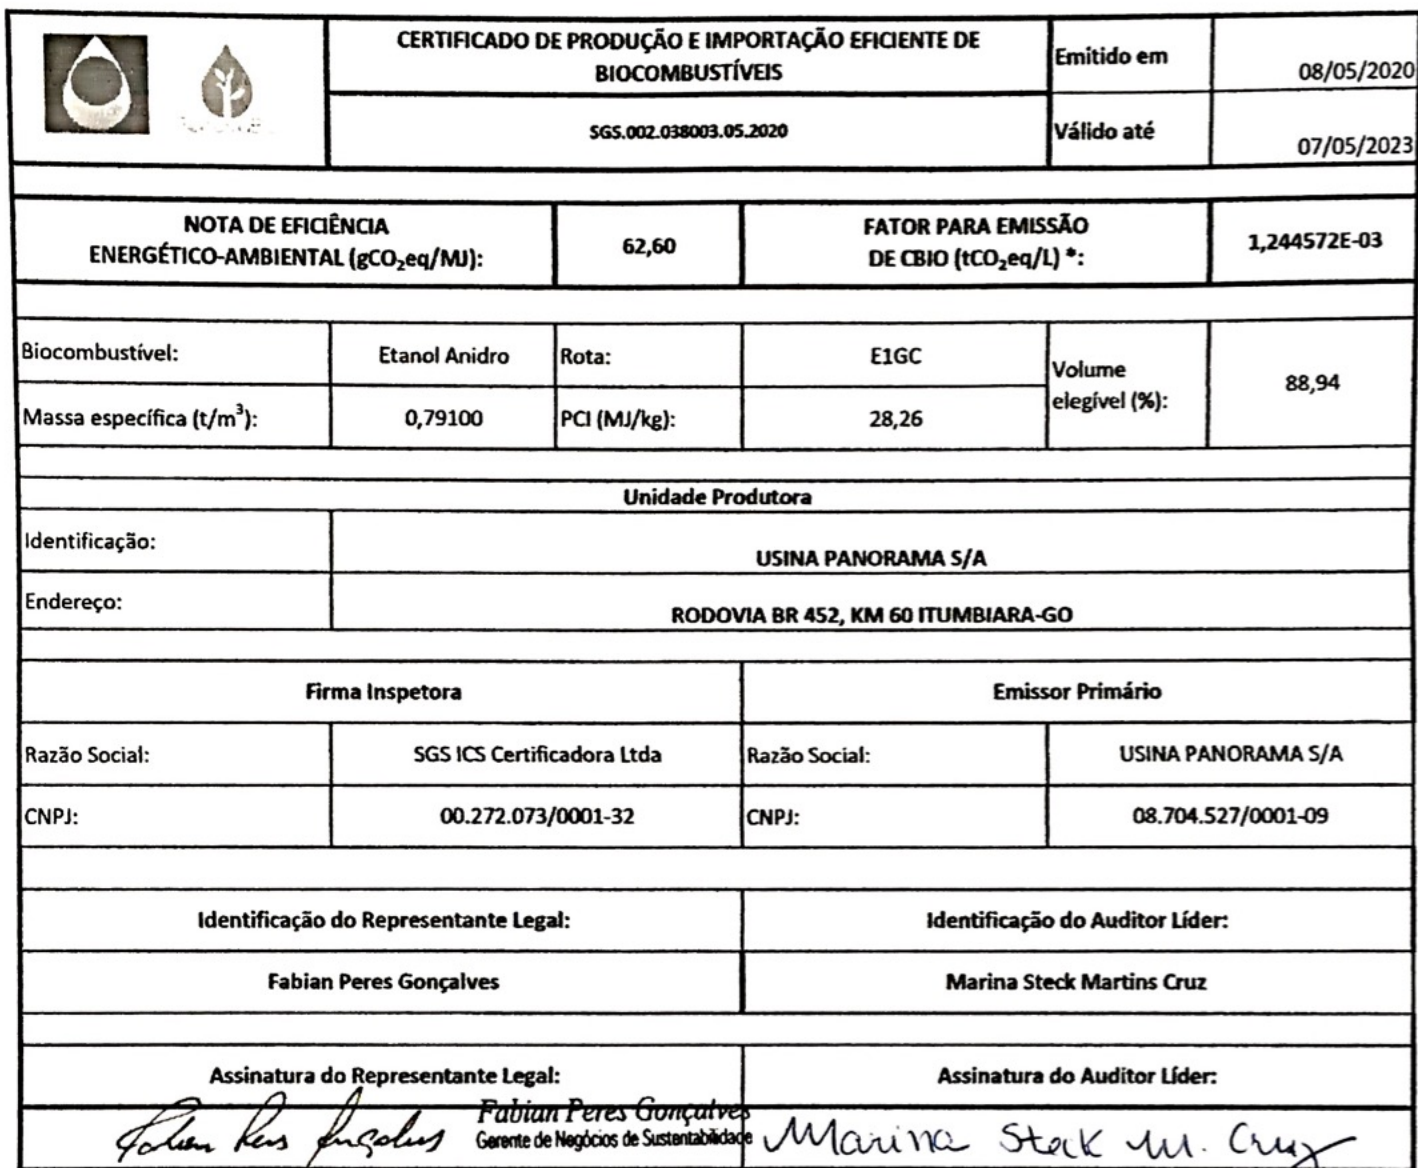 CERTIFICADO DE PRODUÇÃO E IMPORTAÇÃO EFICIENTE DE
BIOCOMBUSTÍVEIS
Emitido em
08/05/2020
SGS.002.038003.05.2020
Válido até
07/05/2023
NOTA DE EFICIÊNCIA
ENERGÉTICO-AMBIENTAL (gCO₂eq/MJ):
62,60
FATOR PARA EMISSÃO
DE CBIO (tCO₂eq/L) *:
1,244572E-03
Biocombustível:
Etanol Anidro
Rota:
E1GC
Volume
elegível (%):
88,94
Massa específica (t/m³):
0,79100
PCI (MJ/kg):
28,26
Unidade Produtora
Identificação:
USINA PANORAMA S/A
Endereço:
RODOVIA BR 452, KM 60 ITUMBIARA-GO
Firma Inspetora
Emissor Primário
Razão Social:
SGS ICS Certificadora Ltda
Razão Social:
USINA PANORAMA S/A
CNPJ:
00.272.073/0001-32
CNPJ:
08.704.527/0001-09
Identificação do Representante Legal:
Identificação do Auditor Líder:
Fabian Peres Gonçalves
Marina Steck Martins Cruz
Assinatura do Representante Legal:
Assinatura do Auditor Líder:
Fabian Peres Gonçalves
Fabian Peres Gonçalves
Gerente de Negócios de Sustentabilidade
Marina Steck M. Cruz